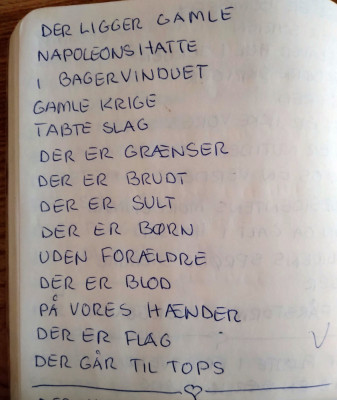 DER LIGGER GAMLE
NAPOLEONSHATTE
I BAGERVINDUET
GAMLE KRIGE
TABTE SLAG
DER ER GRÆNSER
DER ER BRUDT
DER ER SULT
DER ER BØRN
UDEN FORÆLDRE
DER ER BLOD
PÅ VORES HÆNDER
DER ER FLAG
DER GÅR TIL TOPS